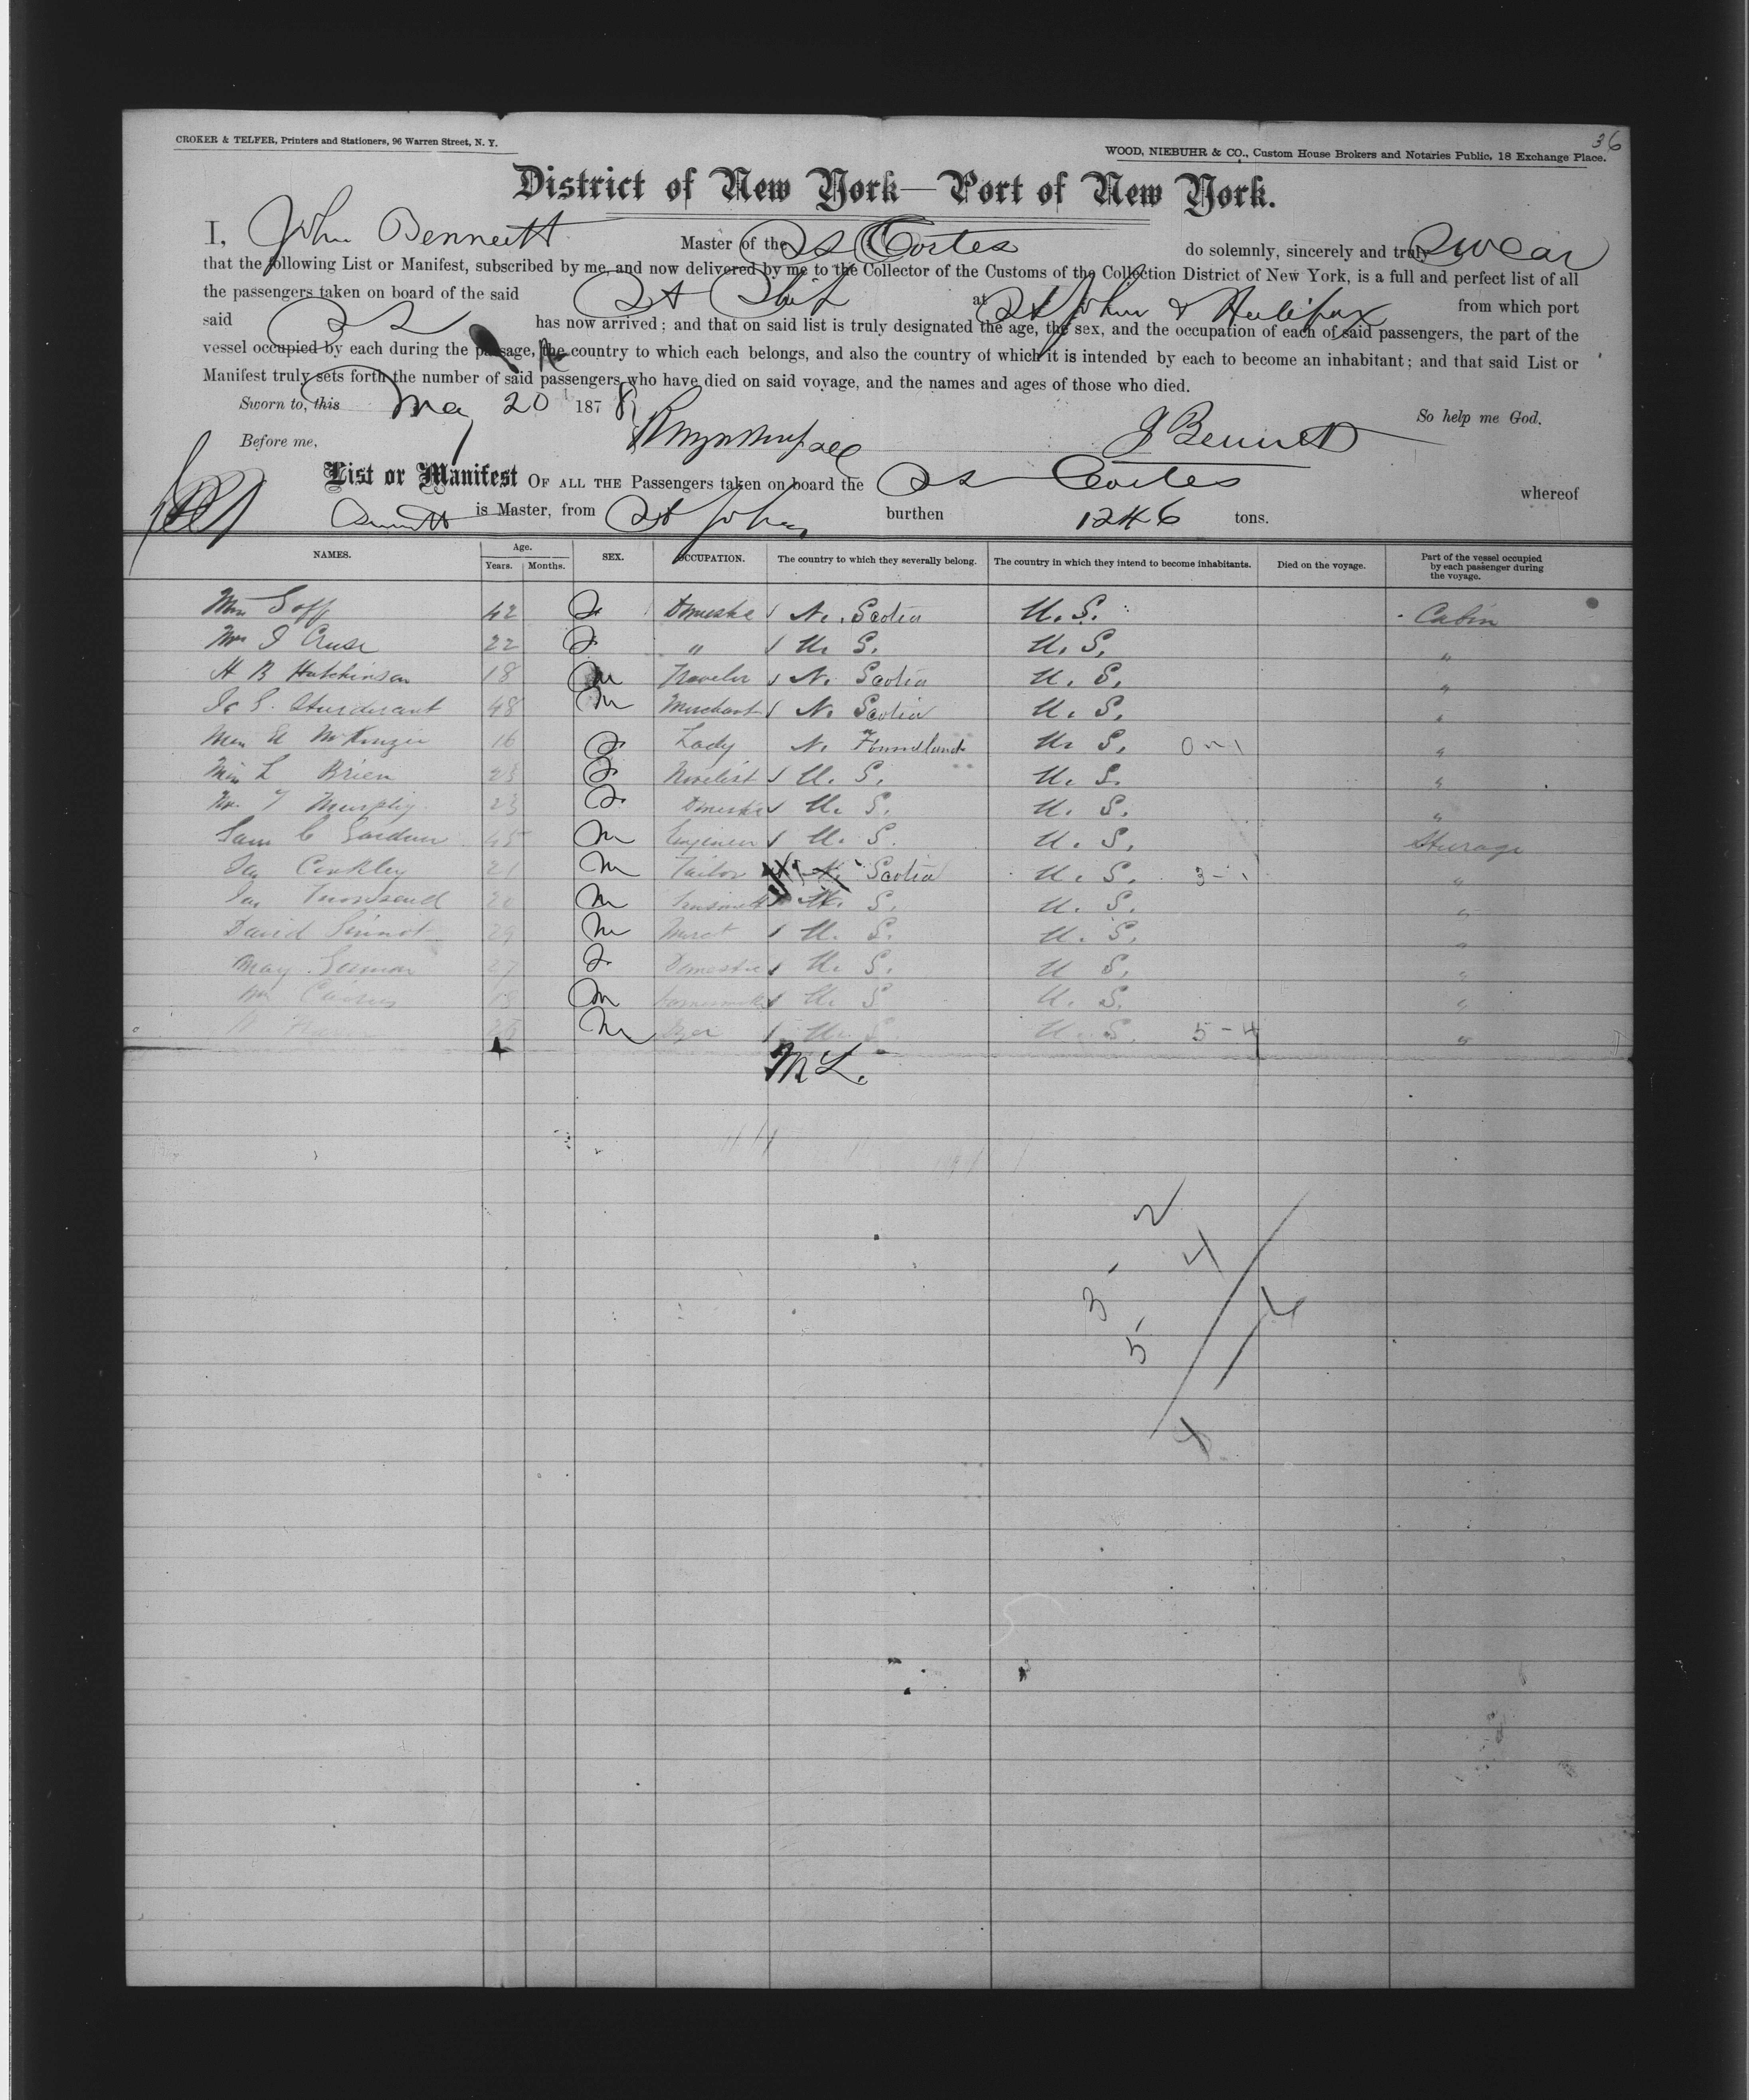 36
CROKER & TELFER, Printers and Stationers, 96 Warren Street, N. Y.
WOOD, NIEBUHR & CO., Custom House Brokers and Notaries Public, 18 Exchange Place.
District of New York—Port of New York.
I, John Bennett Master of the SS Cortes do solemnly, sincerely and truly swear
that the following List or Manifest, subscribed by me, and now delivered by me to the Collector of the Customs of the Collection District of New York, is a full and perfect list of all
the passengers taken on board of the said St Ship at St John & Halifax from which port
said SS has now arrived; and that on said list is truly designated the age, the sex, and the occupation of each of said passengers, the part of the
vessel occupied by each during the passage, the country to which each belongs, and also the country of which it is intended by each to become an inhabitant; and that said List or
Manifest truly sets forth the number of said passengers who have died on said voyage, and the names and ages of those who died.
Sworn to, this May 20 1878 So help me God,
Before me, J Bennett
List or Manifest OF ALL THE Passengers taken on board the SS Cortes whereof
Bennett is Master, from St Johns burthen 1246 tons.
NAMES. Age. Years. Months. SEX. OCCUPATION. The country to which they severally belong. The country in which they intend to become inhabitants. Died on the voyage. Part of the vessel occupied by each passenger during the voyage.
42 Domestic N. Scotia U.S. Cabin
Cruse 22 " U. S. U. S. "
H B Hutchinson 18 m Traveler N. Scotia U. S. "
Sturdevant 48 m Merchant N. Scotia U. S. "
McKenzie 16 Lady N. Foundland U. S. "
Miss L Brien 23 Novelist U. S. U. S. "
Murphy 23 Domestic U. S. U. S. "
Sam C Gardner 45 m Engineer U. S. U. S. Steerage
Conkley 21 m Tailor N. Scotia U. S. 3-1 "
Jas Townsend 20 m U. S. U. S. "
David Sinnot 29 m U. S. U. S. "
May 27 Domestic U. S. U S. "
Wm m U. S U. S. "
m U. S U. S. 5-4 "
ML.
2
4
3
5
4